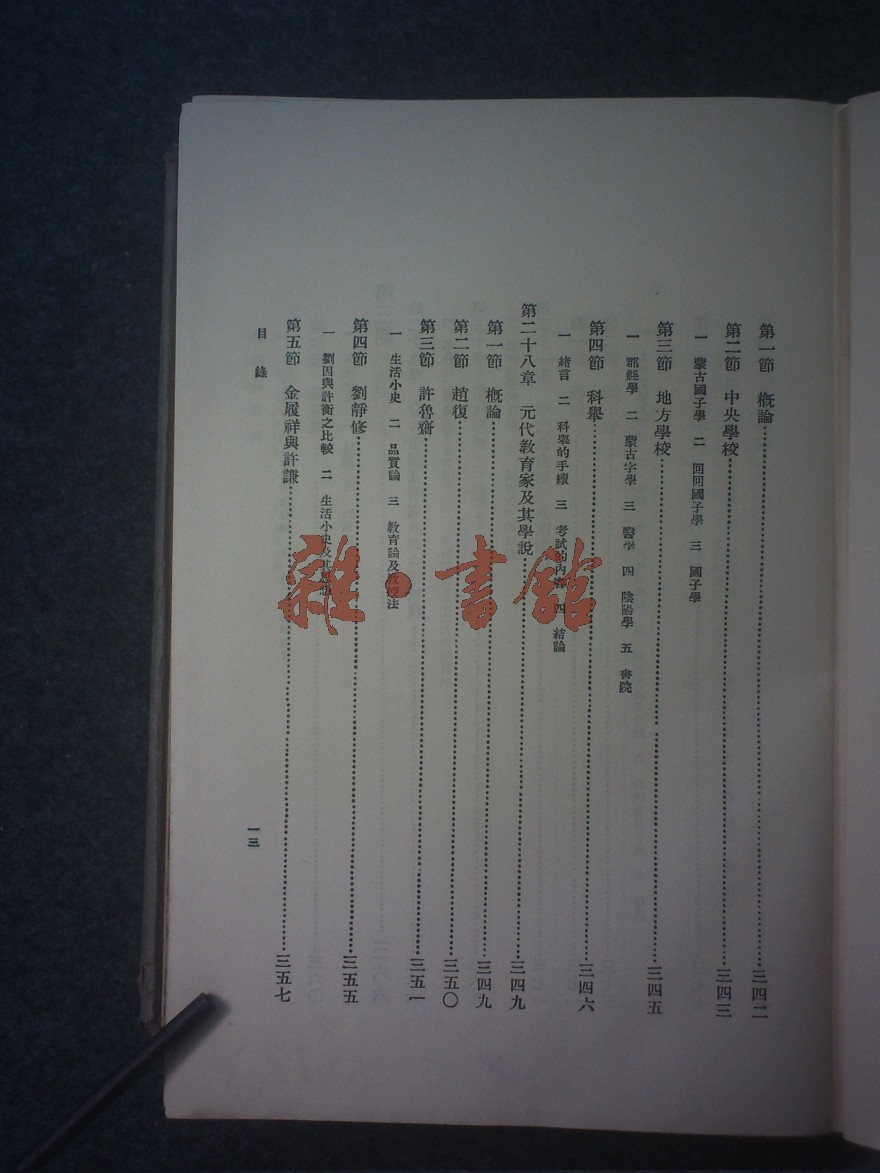 第一節 概論⋯⋯三四二
第二節 中央學校⋯⋯三四三
一 蒙古國子學 二 回回國子學 三 國子學
第三節 地方學校⋯⋯三四五
一 郡縣學 二 蒙古字學 三 醫學 四 陰陽學 五 書院
第四節 科舉⋯⋯三四六
一 緒言 二 科舉的手續 三 考試的內容 四 結論
第二十八章 元代教育家及其學說⋯⋯三四九
第一節 概論⋯⋯三四九
第二節 趙復⋯⋯三五〇
第三節 許魯齋⋯⋯三五一
一 生活小史 二 品質論 三 教育論及 法
第四節 劉靜修⋯⋯三五五
一 劉因與許衡之比較 二 生活小史及其
第五節 金履祥與許謙⋯⋯三五七
目錄
一三
雜·書館